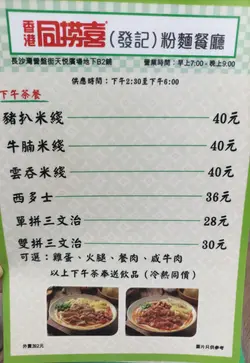 香港 同撈喜 (發記) 粉麵餐廳
長沙灣營盤街天悅廣場地下B2鋪 營業時間：早上7:00 - 晚上9:00
供應時間：下午2:30至下午6:00
下午茶餐
豬扒米綫 40元
牛腩米綫 40元
雲吞米綫 40元
西多士 36元
單拼三文治 28元
雙拼三文治 30元
可選：雞蛋、火腿、餐肉、咸牛肉
以上下午茶奉送飲品 (冷熱同價)
外賣加2元 圖片只供參考